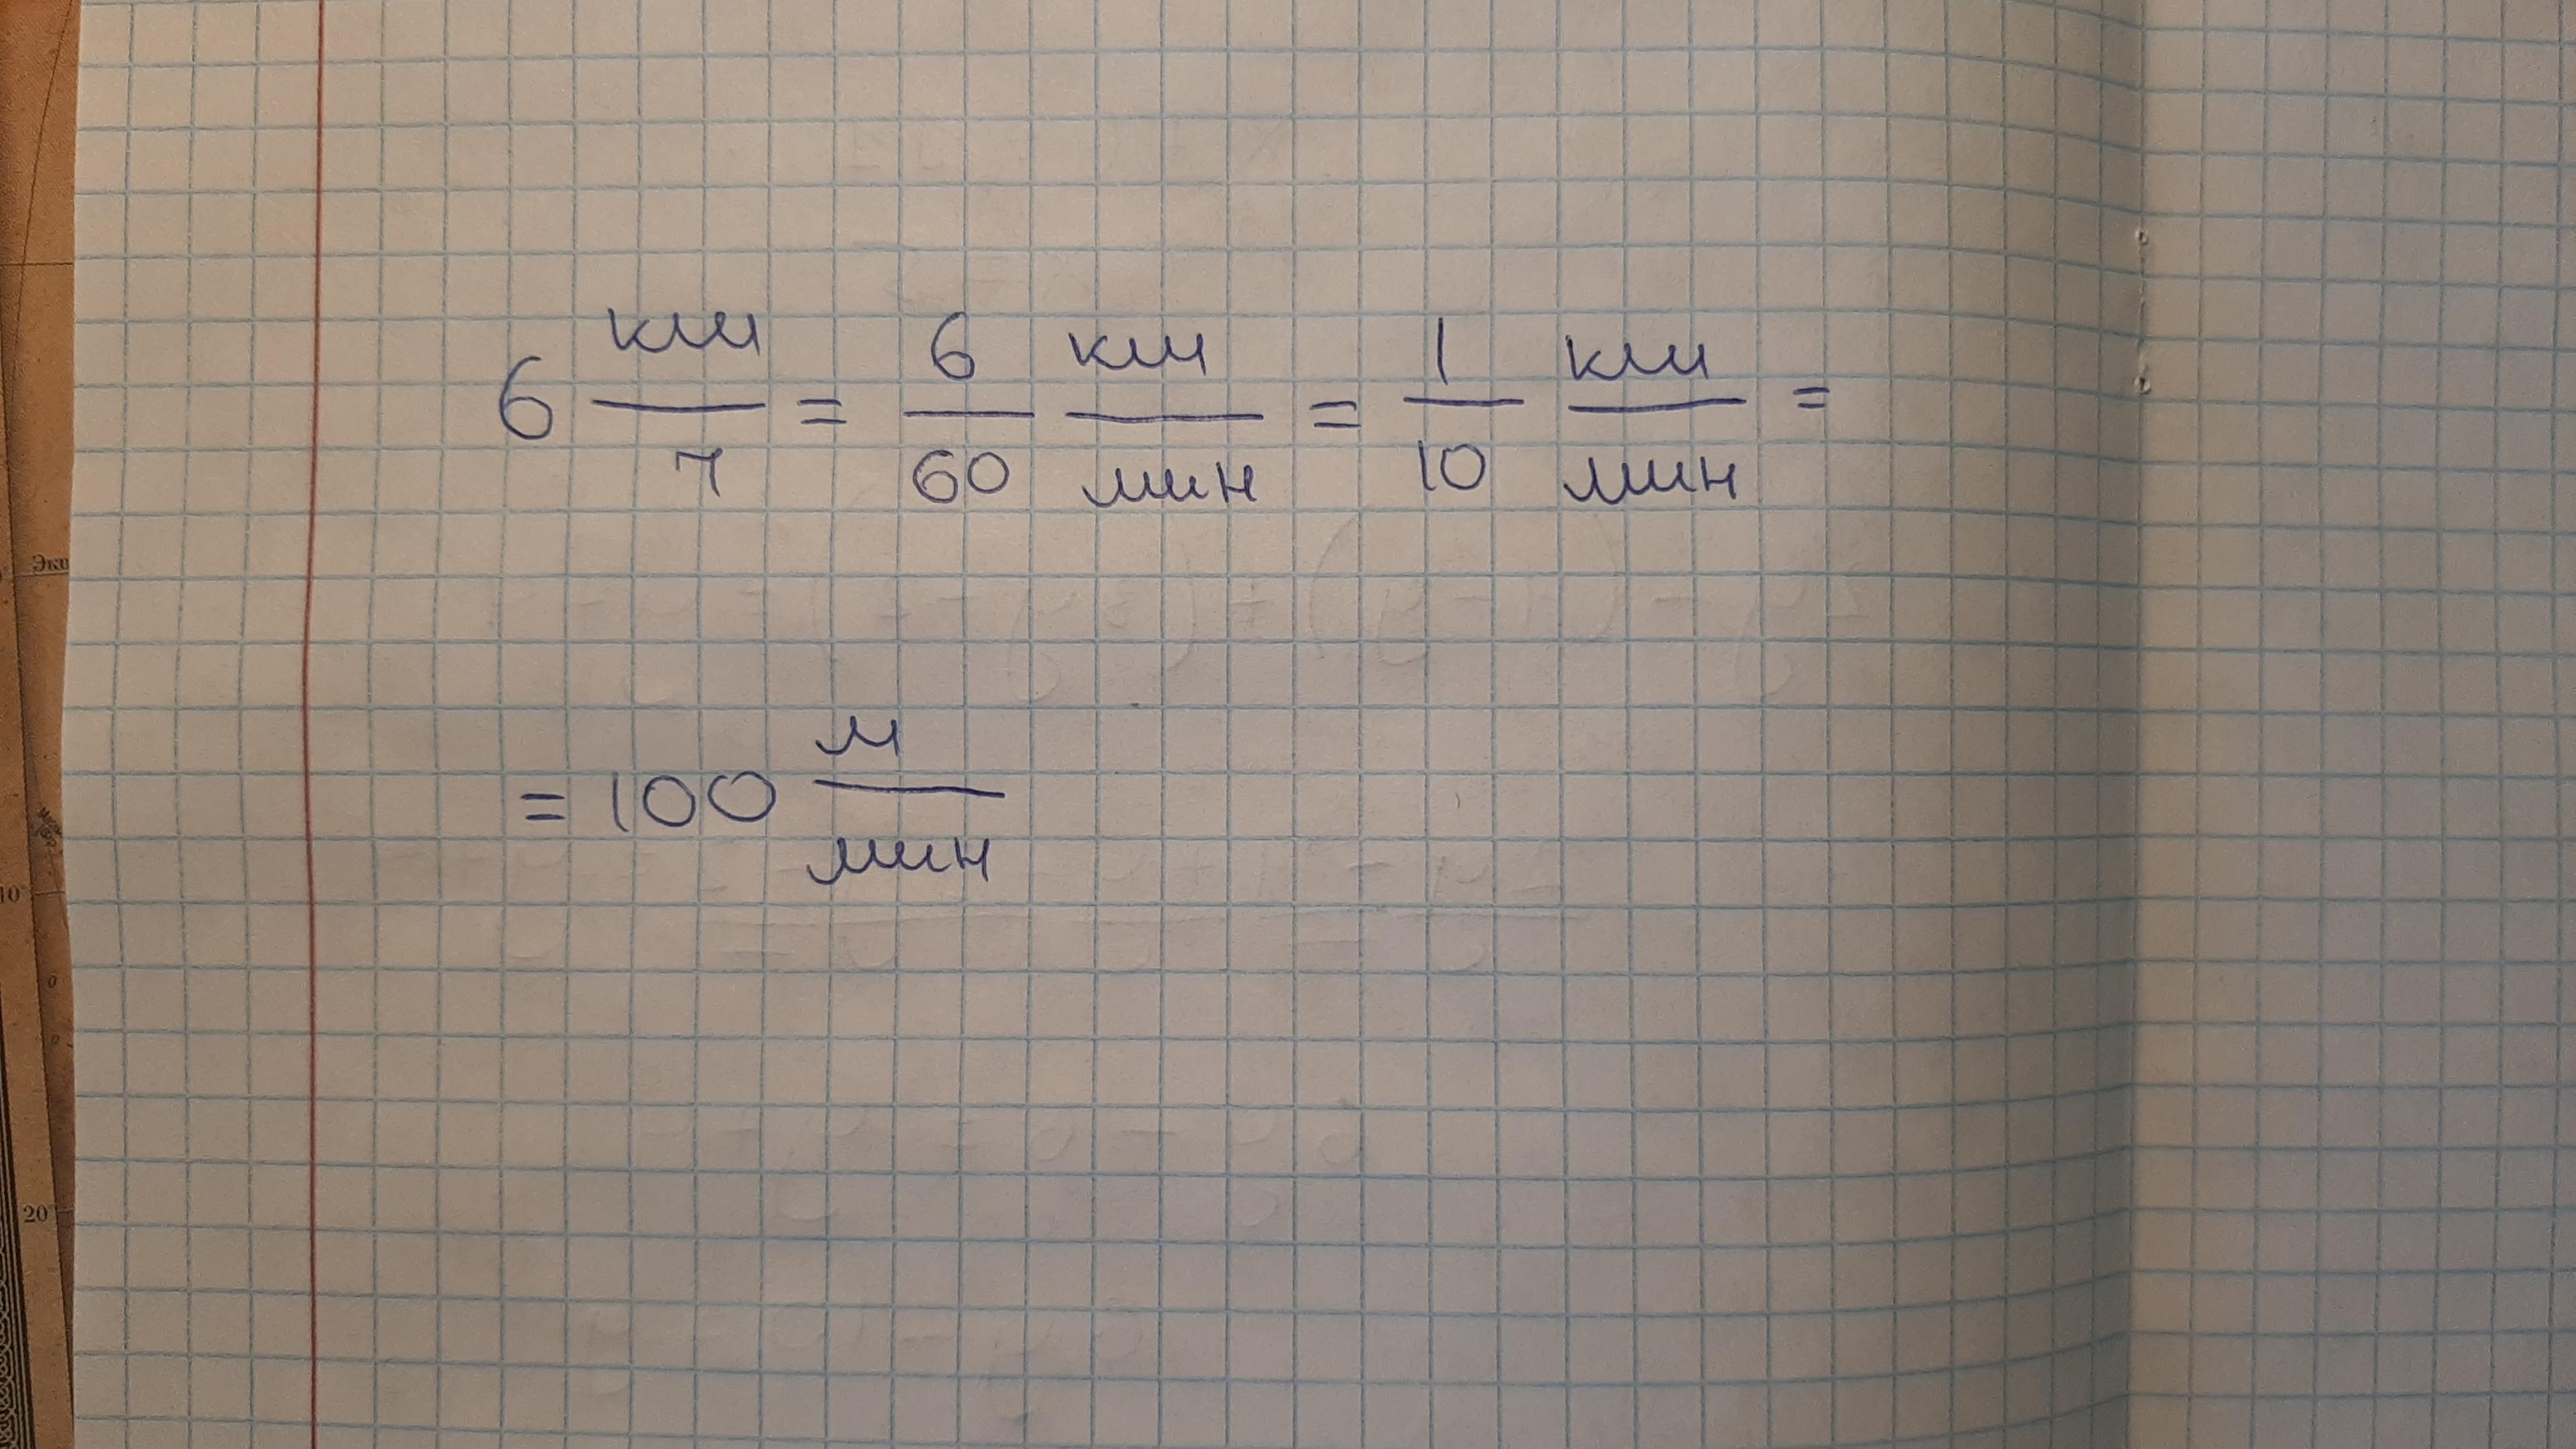 6 км/ч = 6/60 км/мин = 1/10 км/мин =
= 100 м/мин
Эки
10
20